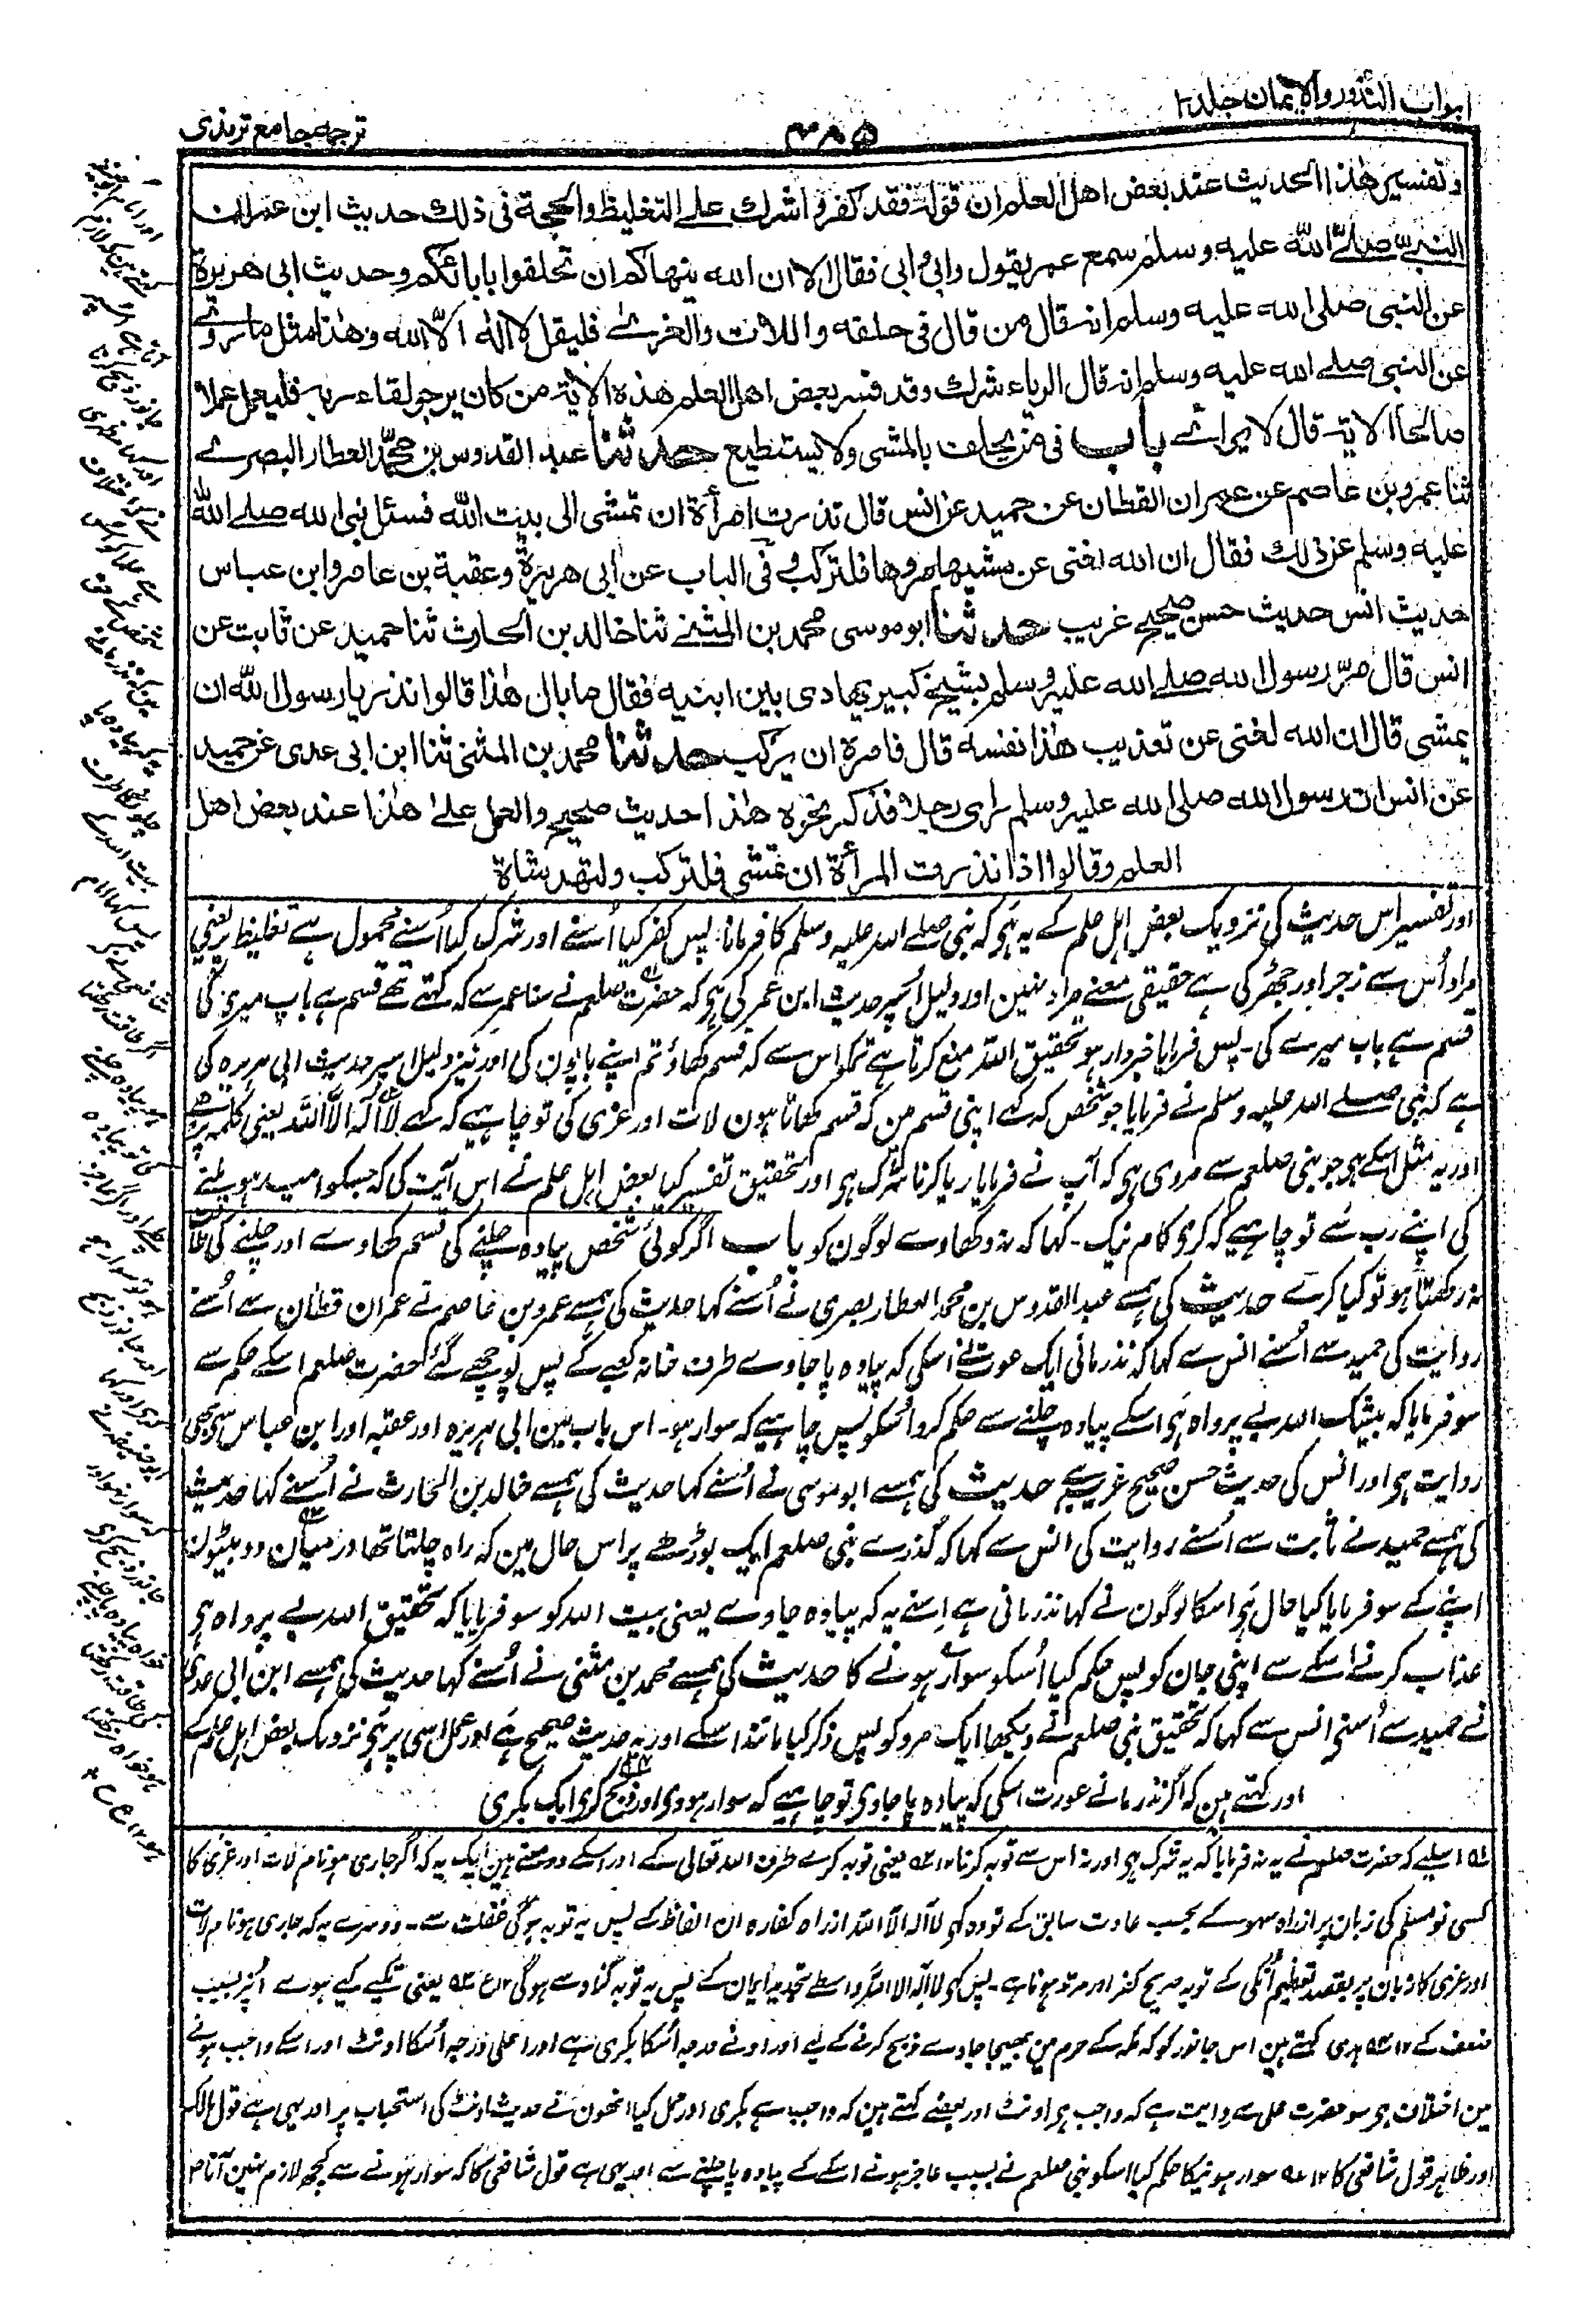 ابواب النذور والایمان جلد۱
۳۸۵
ترجمہ جامع ترمذی
وتفسیر ھذا الحدیث عند بعض اھل العلم ان قولہ فقد کفر واشرک علے التغلیظ والحجة فی ذلک حدیث ابن عمر ان
النبی صلے اللہ علیہ وسلم سمع عمر یقول وابی وابی فقال الا ان اللہ ینھاکم ان تحلفوا بابائکم وحدیث ابی ھریرة
عن النبی صلی اللہ علیہ وسلم انہ قال من قال فی حلفہ واللات والعزے فلیقل لا الہ الا اللہ وھذا مثل ما روے
عن النبی صلے اللہ علیہ وسلم انہ قال الریاء شرک وقد فسر بعض اھل العلم ھذہ الایة من کان یرجو لقاء ربہ فلیعمل عملا
صالحا الایة قال لا یرائے باب فی من یحلف بالمشی ولا یستطیع حدثنا عبد القدوس بن محمد العطار البصرے
ثنا عمرو بن عاصم عن عمران القطان عن حمید عن انس قال نذرت امرأة ان تمشی الی بیت اللہ فسئل نبی اللہ صلے اللہ
علیہ وسلم عن ذلک فقال ان اللہ لغنی عن مشیھا مروھا فلترکب وفی الباب عن ابی ھریرة وعقبة بن عامر وابن عباس
حدیث انس حدیث حسن صحیح غریب حدثنا ابو موسی محمد بن المثنے ثنا خالد بن الحارث ثنا حمید عن ثابت عن
انس قال مر رسول اللہ صلے اللہ علیہ وسلم بشیخ کبیر یھادی بین ابنیہ فقال ما بال ھذا قالوا نذر یا رسول اللہ ان
یمشی قال ان اللہ لغنی عن تعذیب ھذا نفسہ قال فامرہ ان یرکب حدثنا محمد بن المثنی ثنا ابن ابی عدی عن حمید
عن انس ان رسول اللہ صلی اللہ علیہ وسلم رای رجلا فذکر نحوہ ھذا حدیث صحیح والعمل علے ھذا عند بعض اھل
العلم وقالوا اذا نذرت المرأة ان تمشی فلترکب ولتھد شاة
اور تفسیر اس حدیث کی نزدیک بعض اہل علم کے یہ ہی کہ نبی صلے اللہ علیہ وسلم کا فرمانا پس کفر کیا اُسنے اور شرک کیا اُسنے محمول ہے تغلیظ پر یعنی
مراد اُس سے زجر اور جھڑکی ہے حقیقی معنے مراد نہین اور دلیل اسپر حدیث ابن عمر کی ہی کہ حضرت صلعم نے سنا عمر سے کہ کہتے تھے قسم ہے باپ میری کی
قسم ہے باپ میرے کی۔ پس فرمایا خبردار ہو تحقیق اللہ منع کرتا ہے تمکو اس سے کہ قسم کھاؤ تم اپنے باپون کی اور نیز دلیل اسپر حدیث ابی ہریرہ کی
ہے کہ نبی صلے اللہ علیہ وسلم نے فرمایا جو شخص کہ کہے اپنی قسم من کہ قسم کھاتا ہون لات اور عزی کی تو چاہیے کہ کہے لا الہ الا اللہ یعنی کلمہ پڑھے
اور یہ مثل اسکے ہی جو نبی صلعم سے مروی ہی کہ آپ نے فرمایا ریا کرنا شرک ہی اور تحقیق تفسیر کیا بعض اہل علم نے اس آیت کی کہ جسکو امید ہو ملنے
کی اپنے رب سے تو چاہیے کہ کری کام نیک۔ کہا کہ نہ دکھاوے لوگون کو باب اگر کوئی شخص پیادہ چلنے کی قسم کھاوے اور چلنے کی طاقت
نہ رکھتا ہو تو کیا کرے حدیث کی ہمسے عبد القدوس بن محمد العطار بصری نے اُسنے کہا حدیث کی ہمسے عمرو بن عاصم نے عمران قطان سے اُسنے
روایت کی حمید سے اُسنے انس سے کہا کہ نذر مانی ایک عورت نے اسکی کہ پیادہ پا جاوے طرف خانہ کعبے کے پس پوچھے گئے حضرت صلعم اسکے حکم سے
سو فرمایا کہ بیشک اللہ بے پرواہ ہی اسکے پیادہ چلنے سے حکم کرو اُسکو پس چاہیے کہ سوار ہو۔ اس باب مین ابی ہریرہ اور عقبہ اور ابن عباس سی بھی
روایت ہی اور انس کی حدیث حسن صحیح غریب ہے حدیث کی ہمسے ابو موسی نے اُسنے کہا حدیث کی ہمسے خالد بن الحارث نے اُسنے کہا حدیث
کی ہمسے حمید نے ثابت سے اُسنے روایت کی انس سے کہا کہ گذرے نبی صلعم ایک بوڑھے پر اس حال مین کہ راہ چلتا تھا درمیان دو بیٹون
اپنے کے سو فرمایا کیا حال ہی اسکا لوگون نے کہا نذر مانی ہے اِسنے یہ کہ پیادہ جاوے یعنی بیت اللہ کو سو فرمایا کہ تحقیق اللہ بے پرواہ ہی
عذاب کرنے اسکے سے اپنی جان کو پس حکم کیا اُسکو سوار ہونے کا حدیث کی ہمسے محمد بن مثنی نے اُسنے کہا حدیث کی ہمسے ابن ابی عدی
نے حمید سے اُسنی انس سے کہا کہ تحقیق نبی صلعم نے دیکھا ایک مرد کو پس ذکر کیا مانند اسکے اور یہ حدیث صحیح ہے اور عمل اسی پر ہی نزدیک بعض اہل علم کے
اور کہتے ہین کہ اگر نذر مانے عورت اسکی کہ پیادہ پا جاوی تو چاہیے کہ سوار ہووی اور ذبح کری ایک بکری
۱ اسلیے کہ حضرت صلعم نے یہ نہ فرمایا کہ یہ شرک ہی اور نہ اس سے توبہ کرنا ۱۲ یعنی توبہ کرے طرف اللہ تعالی کے اور اسکے دو معنے ہین ایک یہ کہ اگر جاری ہو نام لات اور عزی کا
کسی نو مسلم کی زبان پر از راہ سہو کے بحسب عادت سابق کے تو وہ کہی لا الہ الا اللہ از راہ کفارہ ان الفاظ کے پس یہ توبہ ہوگی غفلت سے۔ دوسرے یہ کہ جاری ہو نام لات
اور عزی کا زبان پر بقصد تعظیم اُنکی کے تو یہ صریح کفر اور مرتد ہونا ہے۔ پس کہی لا الہ الا اللہ واسطے تجدید ایمان کے پس یہ توبہ گناہ سے ہوگی ۱۲ع یعنی تکیے کیے ہوے اُنپر بسبب
ضعف کے ۱۲ ہدی کہتے ہین اس جانور کو کہ مکہ کے حرم مین بھیجا جاوے ذبح کرنے کے لیے اور ادنے درجہ اُسکا بکری ہے اور اعلی درجہ اُسکا اونٹ اور اسکے واجب ہونے
مین اختلاف ہی سو حضرت علی سے روایت ہے کہ واجب ہی اونٹ اور بعضے کہتے ہین کہ واجب ہے بکری اور حمل کیا انھون نے حدیث اونٹ کی استحباب پر اور یہی ہے قول مالک
اور ظاہر قول شافعی کا ۱۲ سوار ہونیکا حکم کیا اسکو نبی صلعم نے بسبب عاجز ہونے اسکے کے پیادہ پا چلنے سے اور یہی ہے قول شافعی کا کہ سوار ہونے سے کچھ لازم نہین آتا